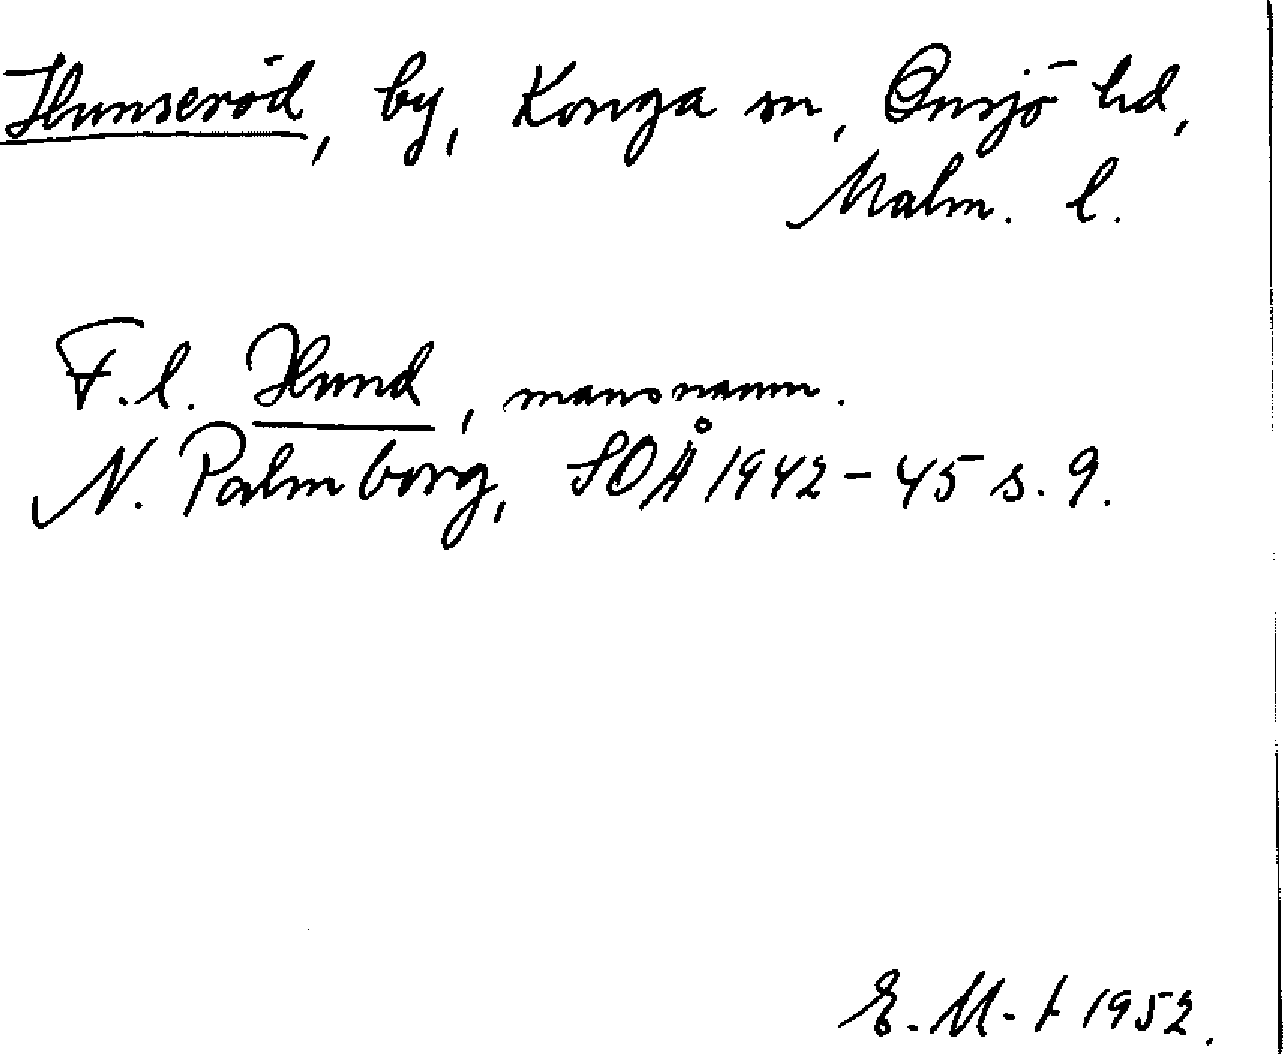 Hunseröd, by, Konga sn, Onsjö hd,
Malm. l.
F.l. Hund, mansnamn.
N. Palmborg, SOÅ 1942-45 s. 9.
E. M-t 1952.